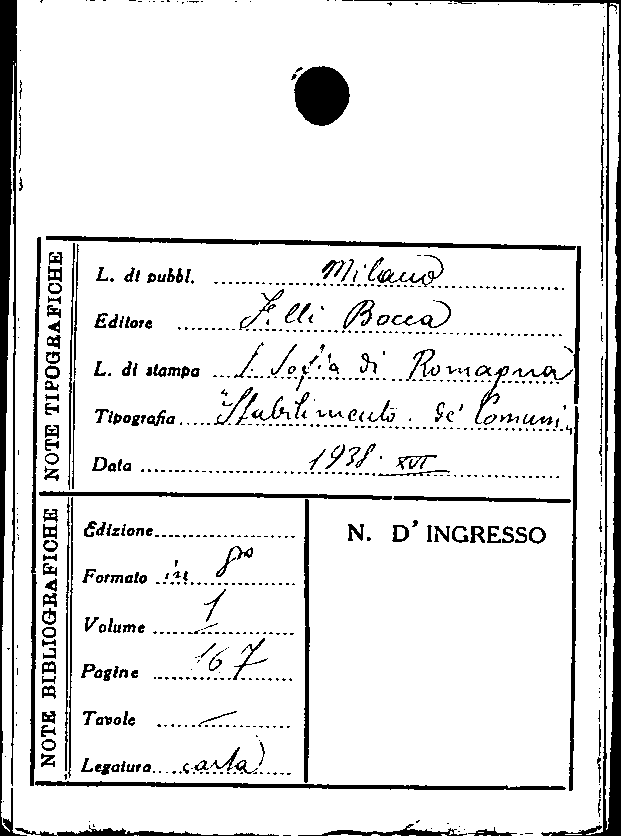 NOTE TIPOGRAFICHE
L. di pubbl. Milano
Editore F.lli Bocca
L. di stampa S. Sofia di Romagna
Tipografia "Stabilimento de' Comuni"
Data 1938. XVI
NOTE BIBLIOGRAFICHE
Edizione
Formato in 8º
Volume 1
Pagine 167
Tavole —
Legatura carta
N. D' INGRESSO